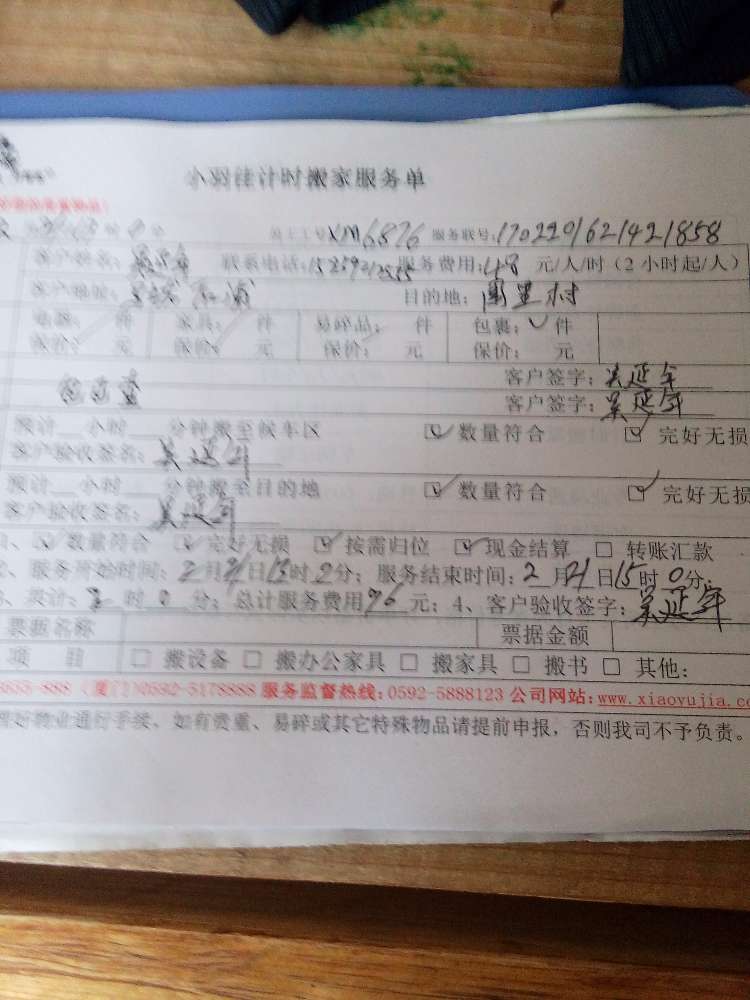 小羽佳计时搬家服务单
员工工号XM6876 服务联号:1702201621421858
客户姓名:吴延年 联系电话: 服务费用:48 元/人/时（2小时起/人）
客户地址: 目的地: 围里村
电器: 件 家具: 件 易碎品: 件 包裹:✓件
保价: 元 保价: 元 保价: 元 保价: 元
客户签字:吴延年
客户签字:吴延年
预计 小时 分钟搬至候车区 ☑数量符合 ☑ 完好无损
客户验收签名:吴延年
预计 小时 分钟搬至目的地 ☑数量符合 ☑ 完好无损
客户验收签名:吴延年
☑数量符合 ☑完好无损 ☑按需归位 ☑现金结算 □ 转账汇款
服务开始时间:2月21日13时0分; 服务结束时间:2月21日15时0分;
累计:2时0分; 总计服务费用96元; 4、客户验收签字:吴延年
票据名称 票据金额
项 目 □ 搬设备 □ 搬办公家具 □ 搬家具 □ 搬书 □ 其他:
(厦门)0592-5178888 服务监督热线:0592-5888123 公司网站:www.xiaoyujia.co
好物业通行手续, 如有贵重、易碎或其它特殊物品请提前申报, 否则我司不予负责。